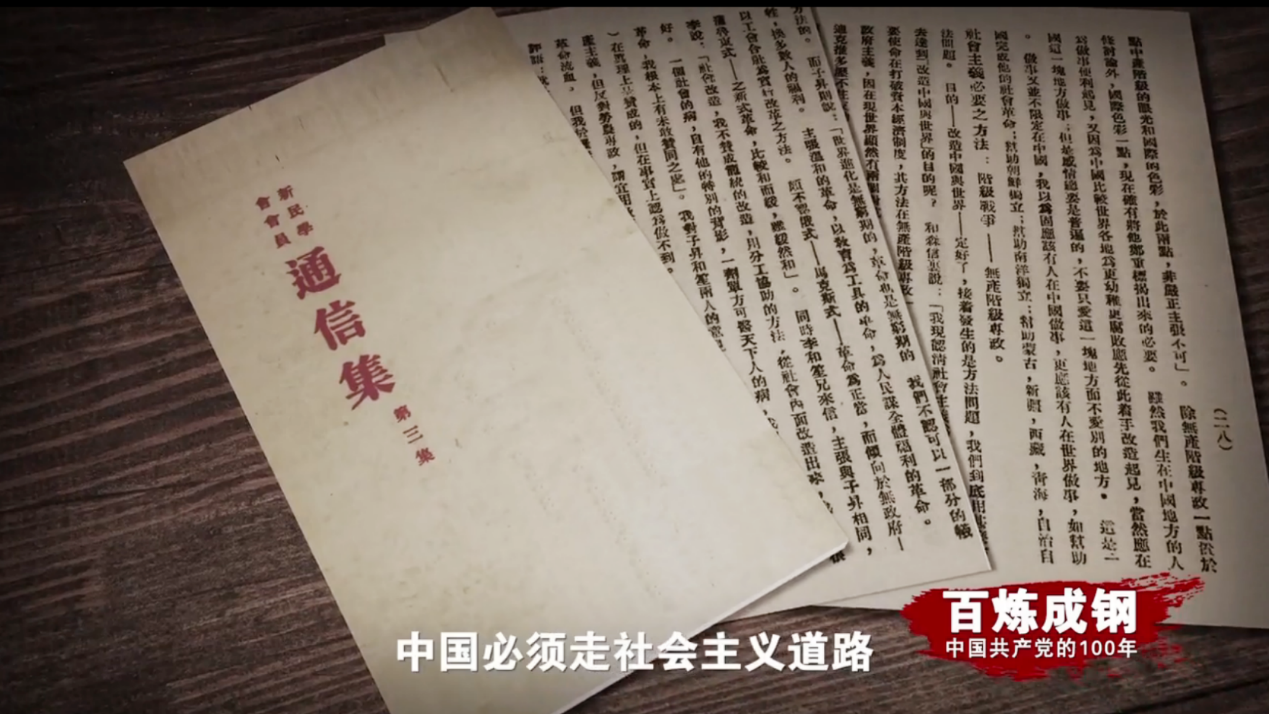 新民學
會會員
通信集
第三集
(二八)
點中產階級的眼光和國際的色彩,於此兩點,非嚴正主張不可」。 除無產階級專政一點侭於
條討論外,國際色彩一點,現在確有將他鄭重標揭出來的必要。 雖然我們生在中國地方的人
爲做事便利起見,又因爲中國比較世界各地爲更幼稚更腐敗應先從此着手改造起見,當然應在
國這一塊地方做事;但是感情總要是普遍的,不要只愛這一塊地方面不愛別的地方。 這是一
。 做事又並不限定在中國,我以爲固應該有人在中國做事,更應該有人在世界做事,如幫助
國完成他的社會革命;幫助朝鮮獨立;幫助南洋獨立;幫助蒙古,新疆,西藏,靑海,自治自
社會主義必要之方法:階級戰爭——無產階級專政。
法問題。 目的——改造中國與世界——定好了,接着發生的是方法問題,我們到底用
去達到「改造中國與世界」的目的呢? 和森信裏說:「我現認淸社會主義
要使命在打破資本經濟制度,其方法在無產階級專政
政府主義,因在現世界顯然有兩個
方法的。 而子昇則說:「世界進化是無窮期的,革命也是無窮期的, 我們不認可以一部分的犧
牲,換多數人的福利。 主張溫和的革命,以教育爲工具的革命,爲人民謀全體福利的革命。
以工會合社爲實行改革之方法。 頗不認俄式——馬克斯式——革命爲正當,而傾向於無政府—
蒲魯東式——之新式革命,比較和而緩,雖緩然和」。 同時李和笙兄來信,主張與子昇相同,
李說:「社會改造,我不贊成籠統的改造,用分工協助的方法,從社會內面改造出來,
好。 一個社會的病,自有他的特別的背影,一劑單方可醫天下人的病,我
革命,我根本上有未敢贊同之處」。 我對子昇和笙兩人的意見
)在眞理上是贊成的,但在事實上認爲做不到。
中国必须走社会主义道路
百炼成钢
中国共产党的100年